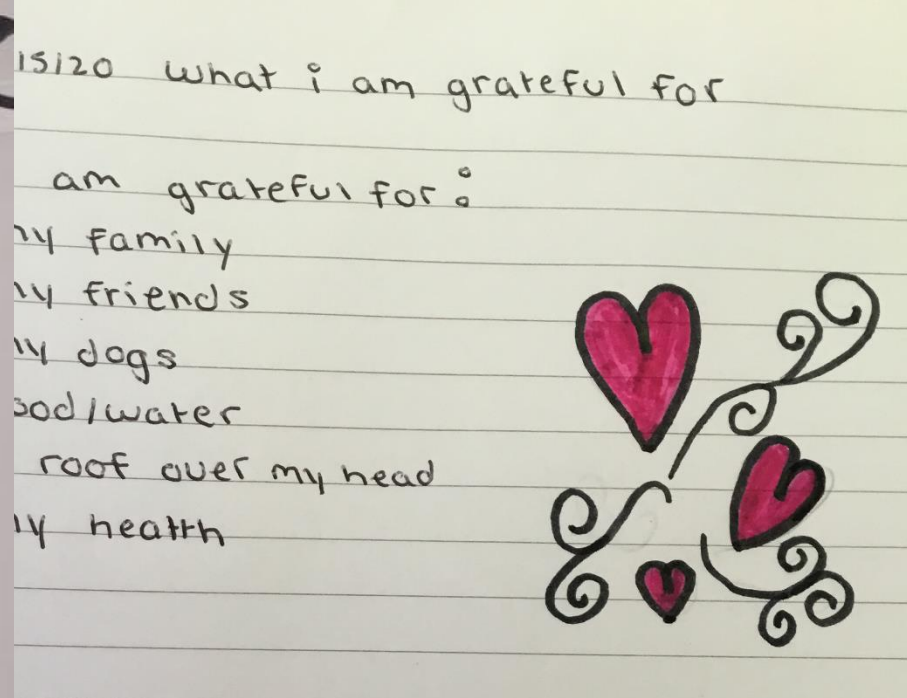 15/20 what i am grateful for
am grateful for:
my family
my friends
my dogs
food/water
roof over my head
my health